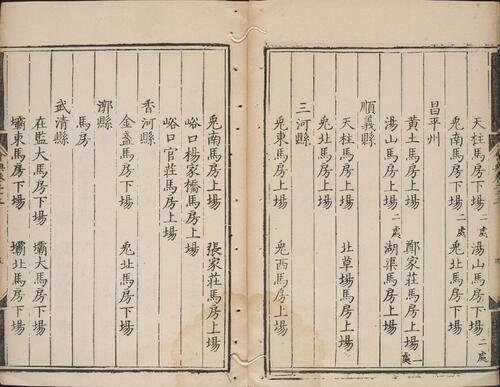 天柱馬房下場二處 湯山馬房下場二處
兎南馬房下場二處 兎北馬房下場
昌平州
黃土馬房上場 鄭家莊馬房上場一處
湯山馬房上場二處 湖渠馬房上場
順義縣
天柱馬房上場 北草場馬房上場
兎北馬房上場
三河縣
兎東馬房上場 兎西馬房上場
兎南馬房上場 張家莊馬房上場
峪口楊家橋馬房上場
峪口官莊馬房上場
香河縣
金盞馬房下場 兎北馬房下場
漷縣
馬房
武清縣
在監大馬房下場 壩大馬房下場
壩東馬房下場 壩北馬房下場